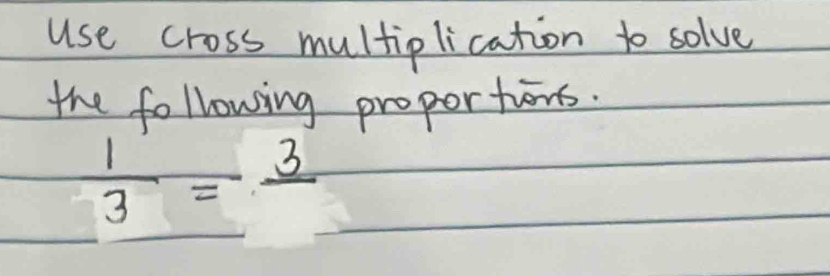 Use cross multiplication to solve
the following proportions.
1/3 = 3/